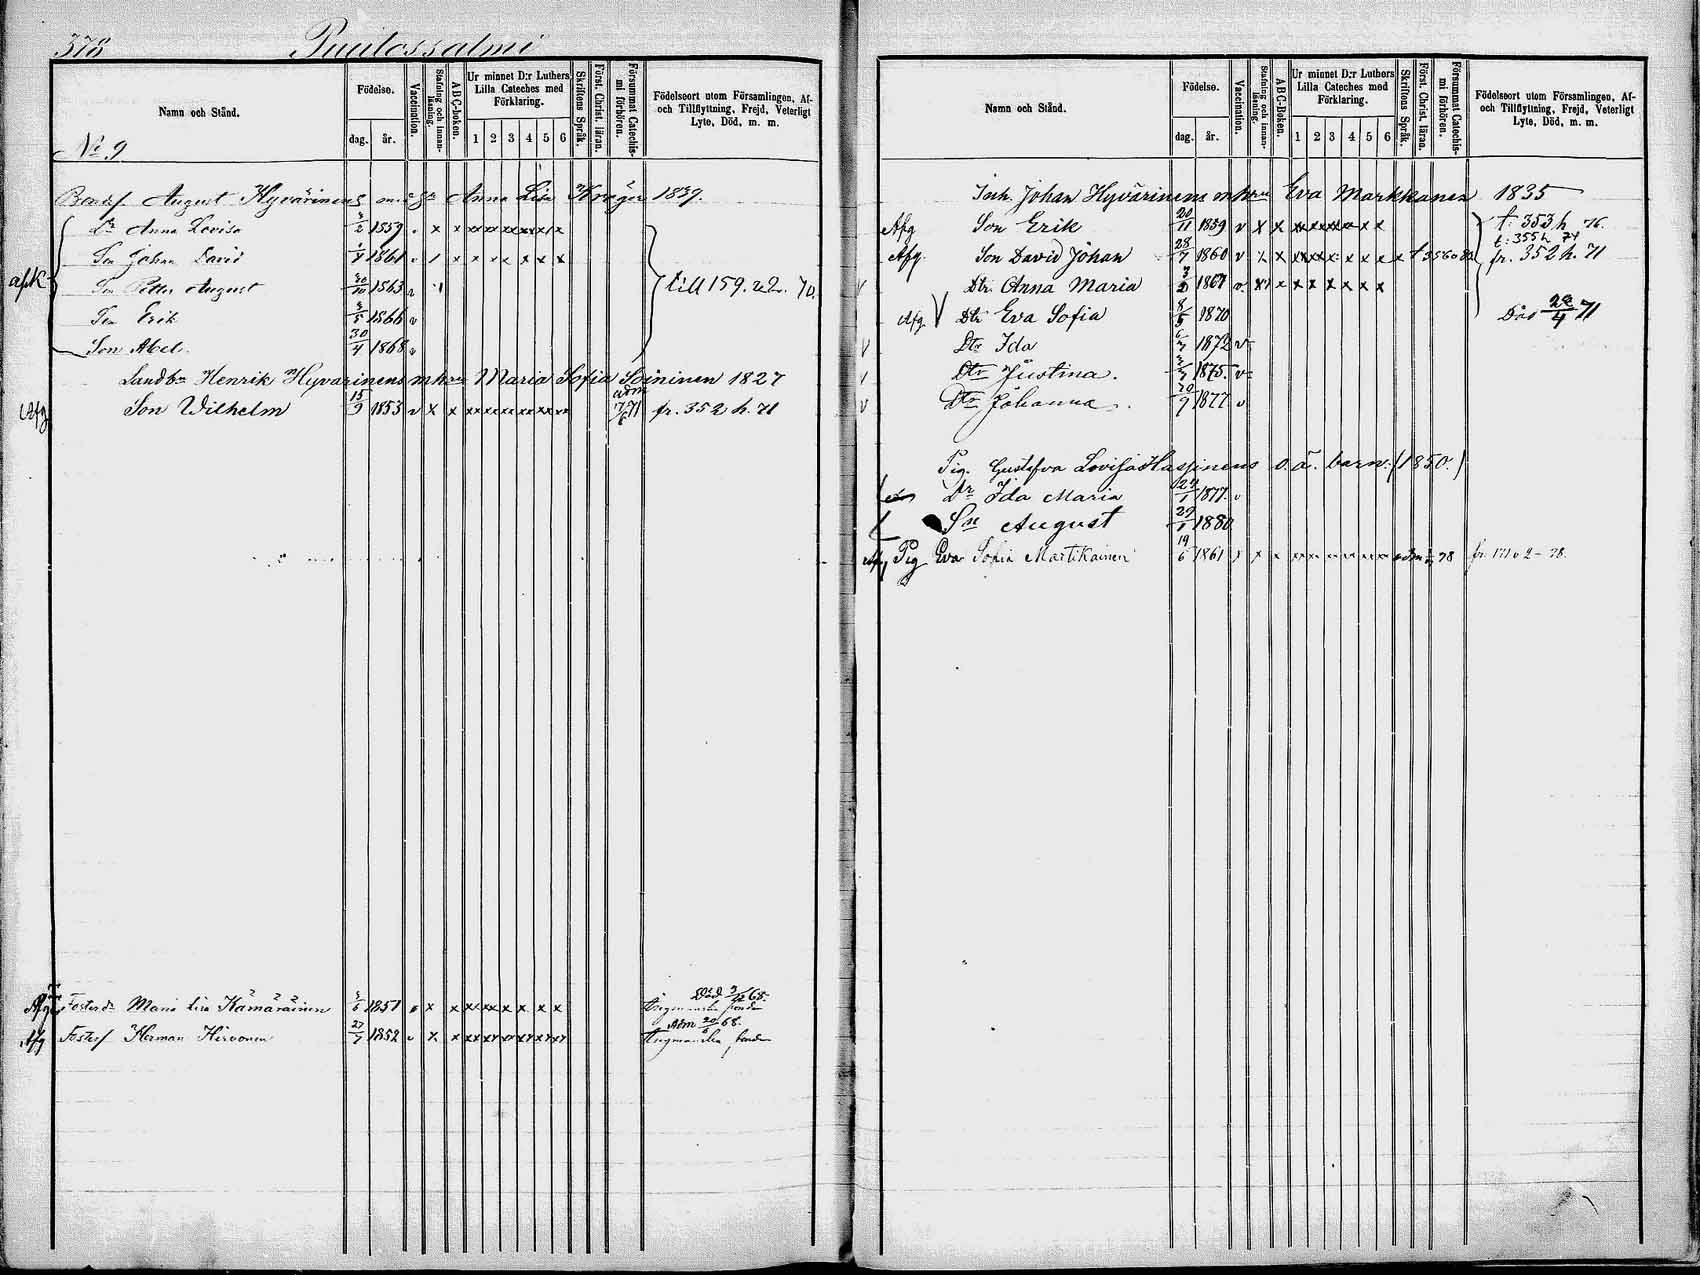 378 Puutossalmi
Namn och Stånd.
Födelse.
dag. år.
Vaccination.
Stafning och innanläsning.
A B C-boken.
Ur minnet D:r Luthers Lilla Cateches med Förklaring.
1 2 3 4 5 6
Skriftens Språk.
Först. Christ. läran.
Försummat Catechismi förhören.
Födelseort utom Församlingen, Af- och Tillflyttning, Frejd, Veterligt Lyte, Död, m. m.
No 9
August Hyvärinens Anna Lisa Kröger 1839.
Dr Anna Lovisa 1859 v x x
Son Johan David 1861 v
Son Petter August 1863 v till 159. 70.
Son Erik 1866 v
Son Abel. 30/4 1868 v
Landb:n Henrik Hyvärinens m h:u Maria Sofia Soininen 1827
Afg Son Wilhelm 15/9 1853 v x x adm 71 fr. 352 h. 71
Afg Fosterdr Maria Lisa Kämäräinen 1851 x x Död 68.
Afg Fosters Herman Hirvonen 27/7 1852 v x x Adm 20/6 68.
Namn och Stånd.
Födelse.
dag. år.
Vaccination.
Stafning och innanläsning.
A B C-boken.
Ur minnet D:r Luthers Lilla Cateches med Förklaring.
1 2 3 4 5 6
Skriftens Språk.
Först. Christ. läran.
Försummat Catechismi förhören.
Födelseort utom Församlingen, Af- och Tillflyttning, Frejd, Veterligt Lyte, Död, m. m.
Inh. Johan Hyvärinens m h:u Eva Markkanen 1835
Afg Son Erik 20/11 1859 v x x t. 353 h 76.
t: 355 h 74
Afg. Son David Johan 28/7 1860 v x x fr. 352 h. 71
Dtr Anna Maria 3/2 1867 v.
Afg. Dtr Eva Sofia 8/5 1870 Död 22/4 71
Dtr Ida 1872 v
Dtr Justina. 1875. v
Dtr Johanna. 20/9 1877 v
Pig. Gustafva Lovisa Hassinens o. ä. barn: (1850.)
Dr Ida Maria 24/1 1877. v
Sn August 29/1 1880
Afg Pig Eva Sofia Martikainen 19/6 1861 x x x adm 78 fr. 171 v 2 - 78.